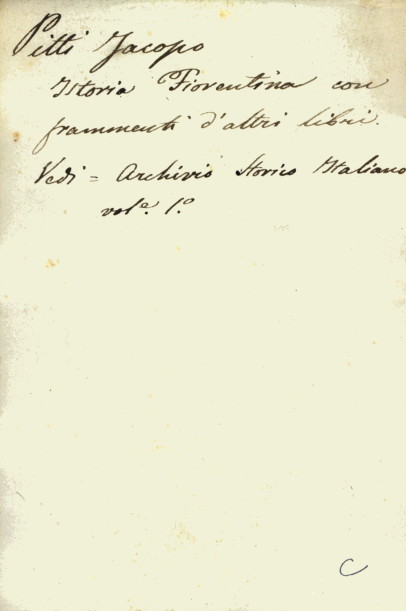 Pitti Jacopo
Istoria Fiorentina con
frammenti d'altri libri.
Vedi = Archivio Storico Italiano
vol.e 1.o
C